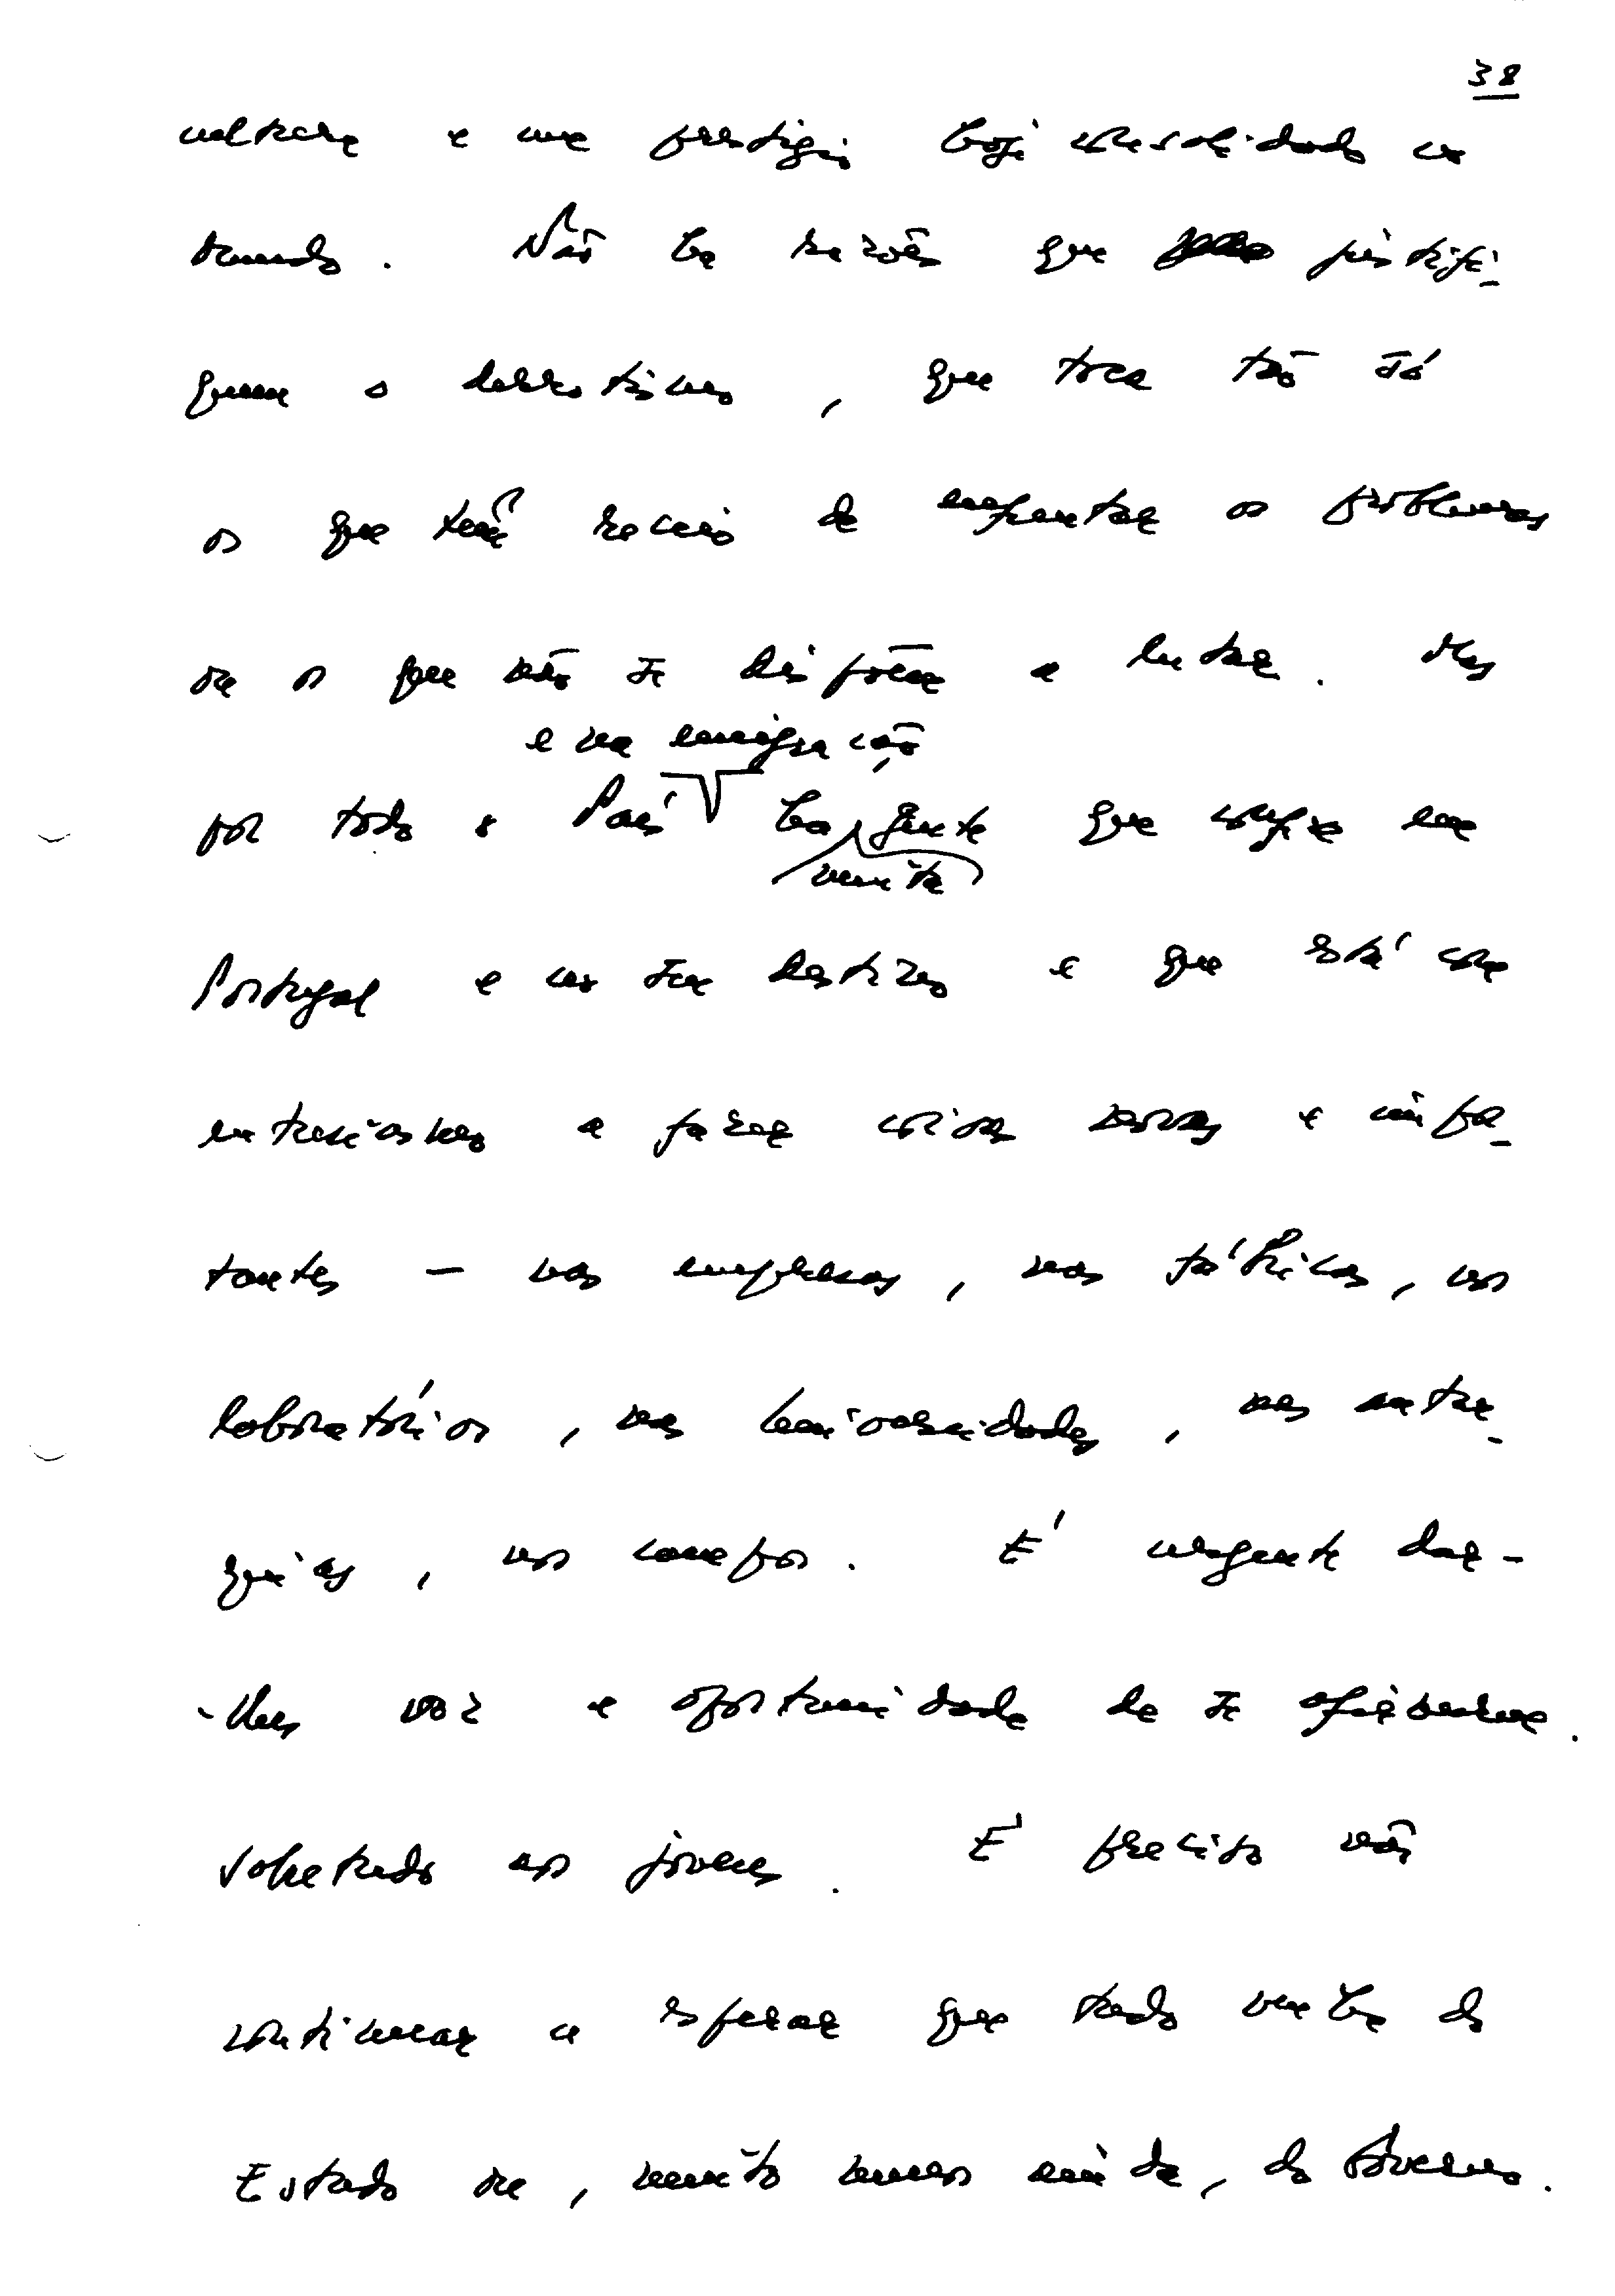 38
cultura e um prestígio hoje consolidado no
mundo. Não há razões que justifi-
quem o derrotismo, que toca tão só
os que têm receio de enfrentar os problemas
ou os que não se dispõem a lutar. Mas
e na emigração
por todo o País há gente que confia em
muita
Portugal e no seu destino e que está com
entusiasmo a fazer coisas novas e impor-
tantes — nas empresas, nas fábricas, nos
laboratórios, nas Universidades, nas autar-
quias, nos campos. É urgente dar-
-lhes voz e oportunidade de se afirmarem.
Sobretudo aos jovens. É preciso não
continuar a esperar que tudo venha do
Estado ou, muito menos ainda, do Governo.